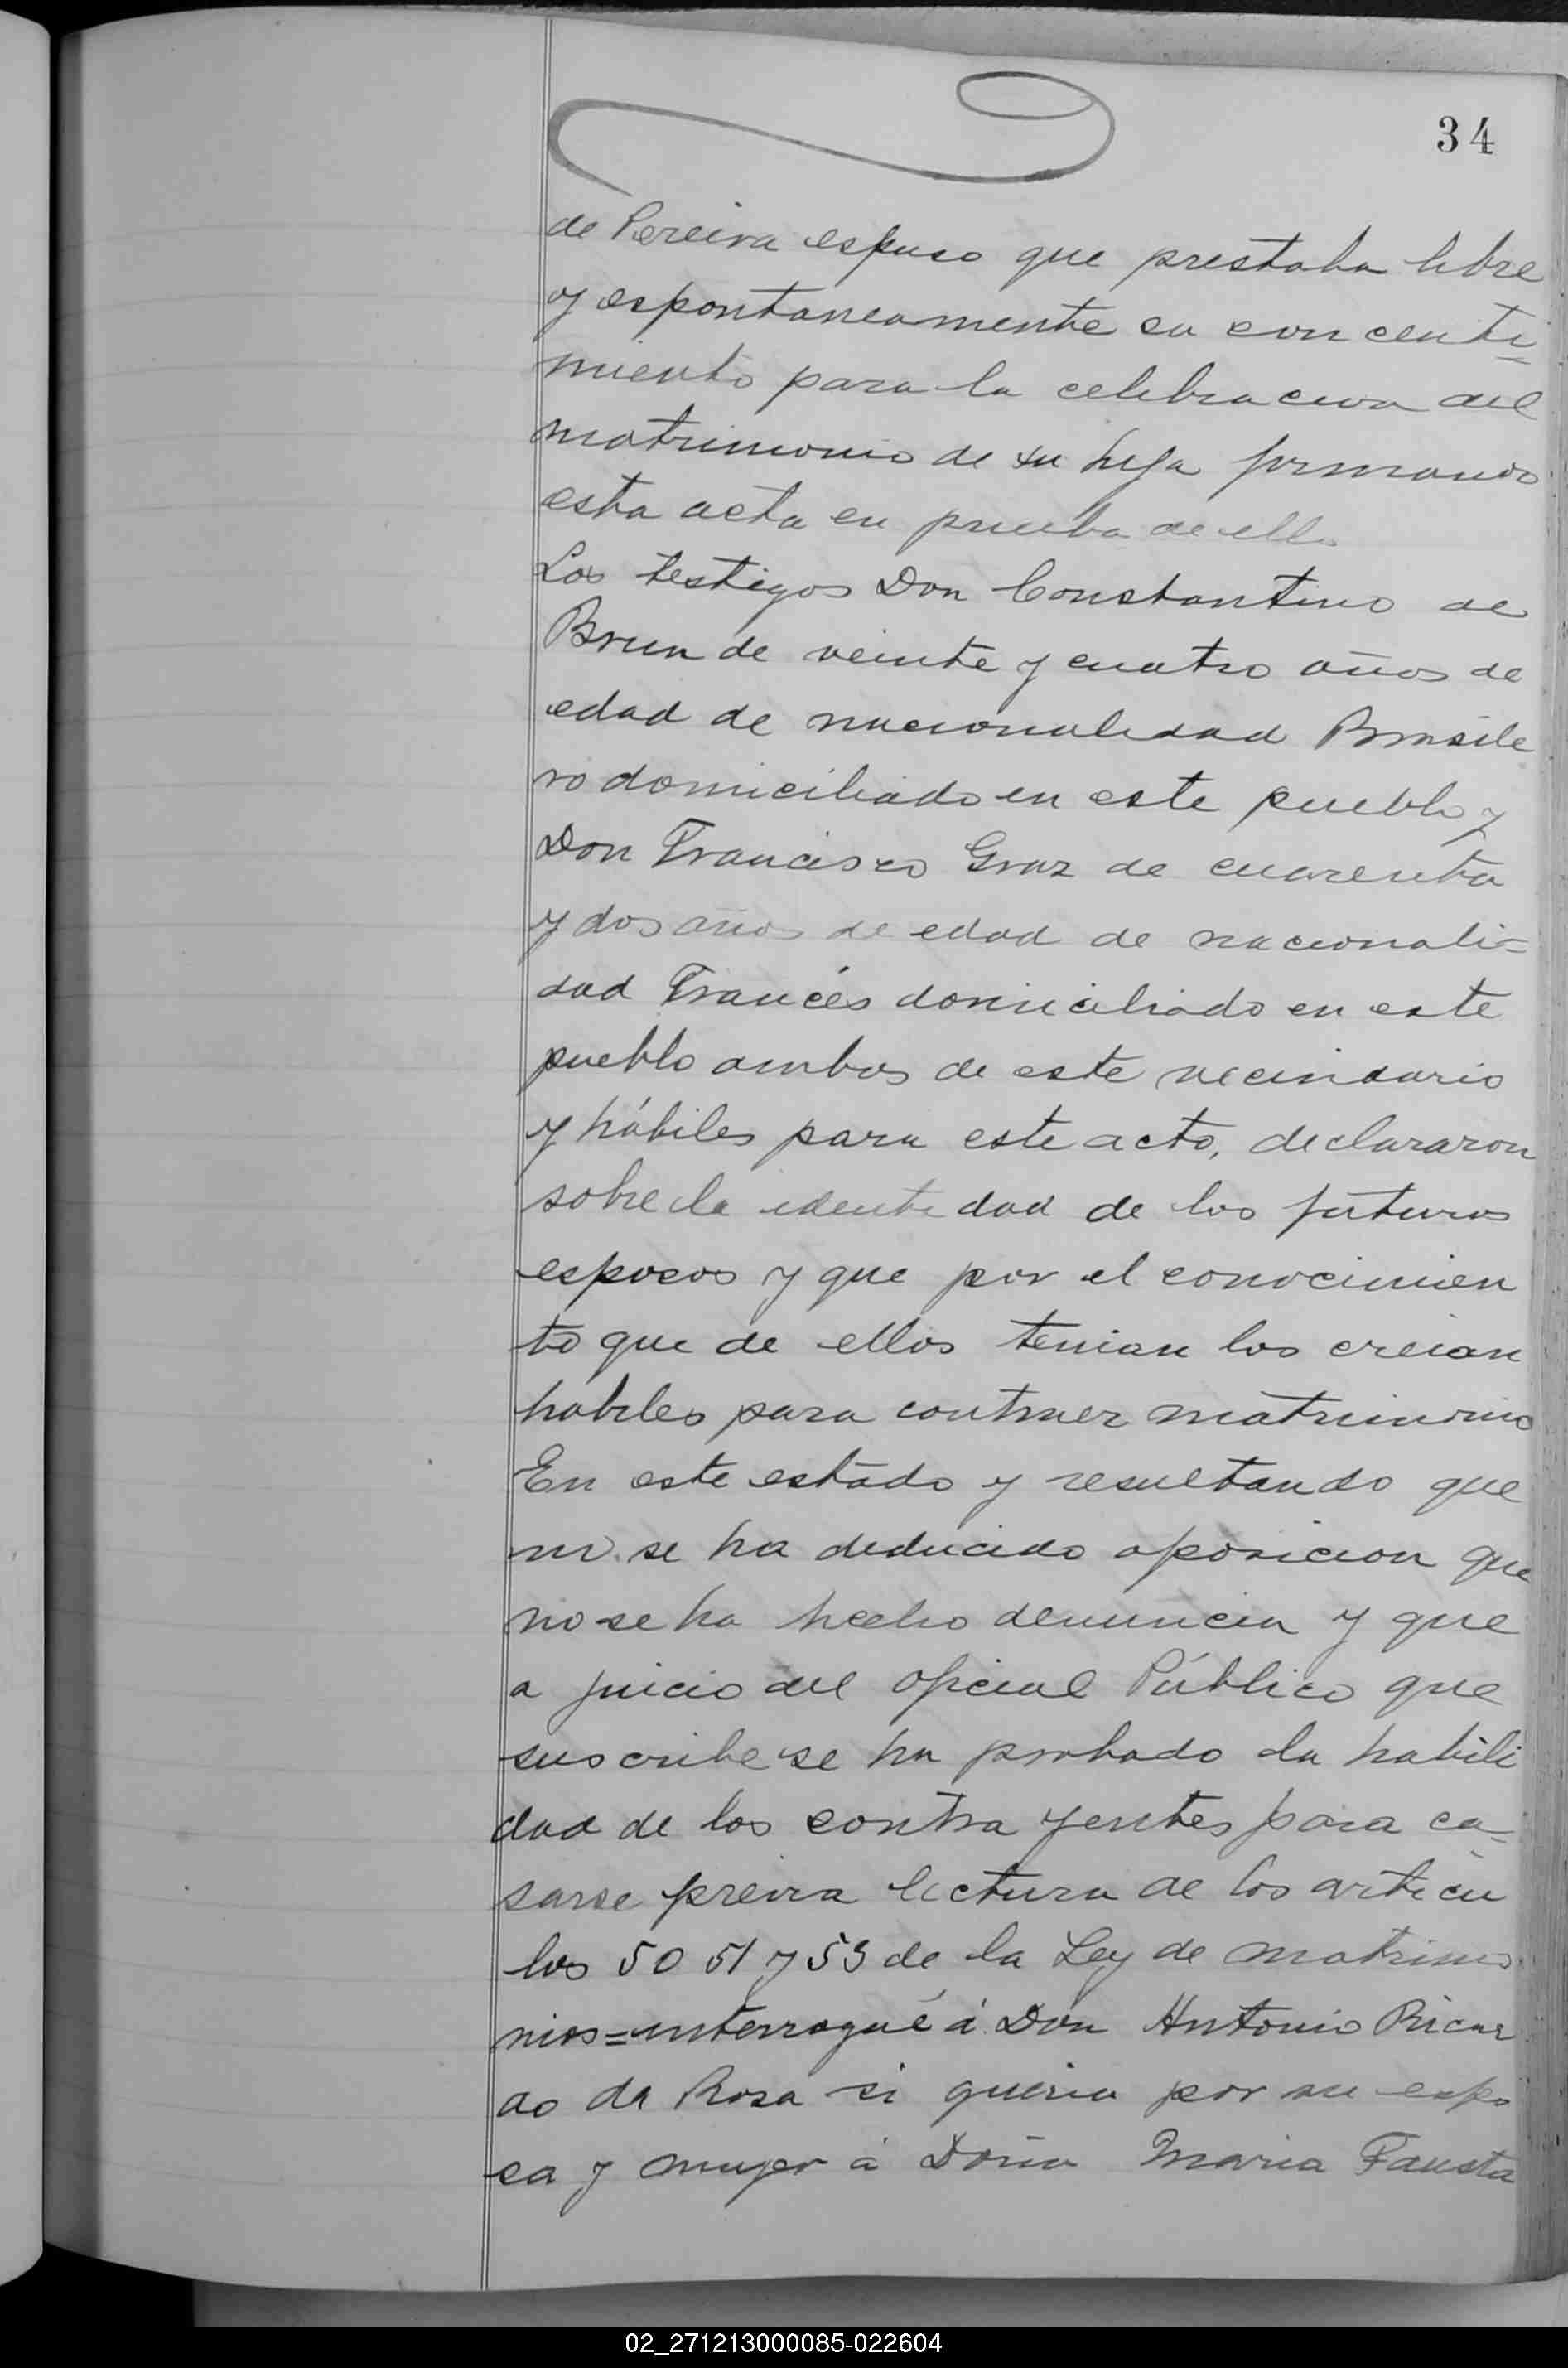 34
de Pereira espuso que prestaba libre
y espontaneamente su consenti=
miento para la celebracion del
matrimonio de su hija firmando
esta acta en prueba de ello
Los testigos Don Constantino de
Brun de veinte y cuatro años de
edad de nacionalidad Brasile
ro domiciliado en este pueblo y
Don Francisco Graz de cuarenta
y dos años de edad de nacionali=
dad Francés domiciliado en este
pueblo ambos de este vecindario
y hábiles para este acto, declararon
sobre la identidad de los futuros
esposos y que por el conocimien
to que de ellos tenian los creian
habiles para contraer matrimonio
En este estado y resultando que
no se ha deducido oposicion que
no se ha hecho denuncia y que
a juicio del oficial Público que
suscribe se ha probado la habili
dad de los contra yentes para ca=
sarse previa lectura de los articu
los 50 51 y 53 de la Ley de matrimo
nios=interrogué á Don Antonio Ricar
do da Rosa si queria por su espo
sa y muger á Doña Maria Fausta
02_271213000085-022604